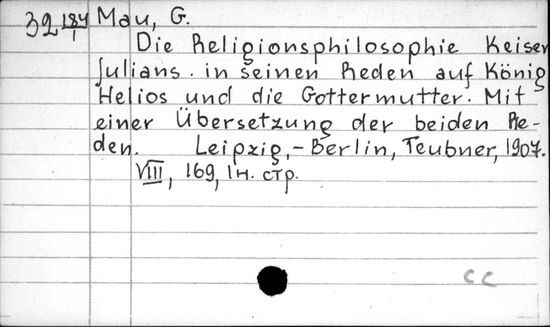 39 184/1 Mau, G.
Die Religionsphilosophie Keiser
Julians. in seinen Reden auf König
Helios und die Gottermutter. Mit
einer Übersetzung der beiden Re-
den. Leipzig,-Berlin, Teubner, 1907.
VIII, 169, 1н. стр.
CC